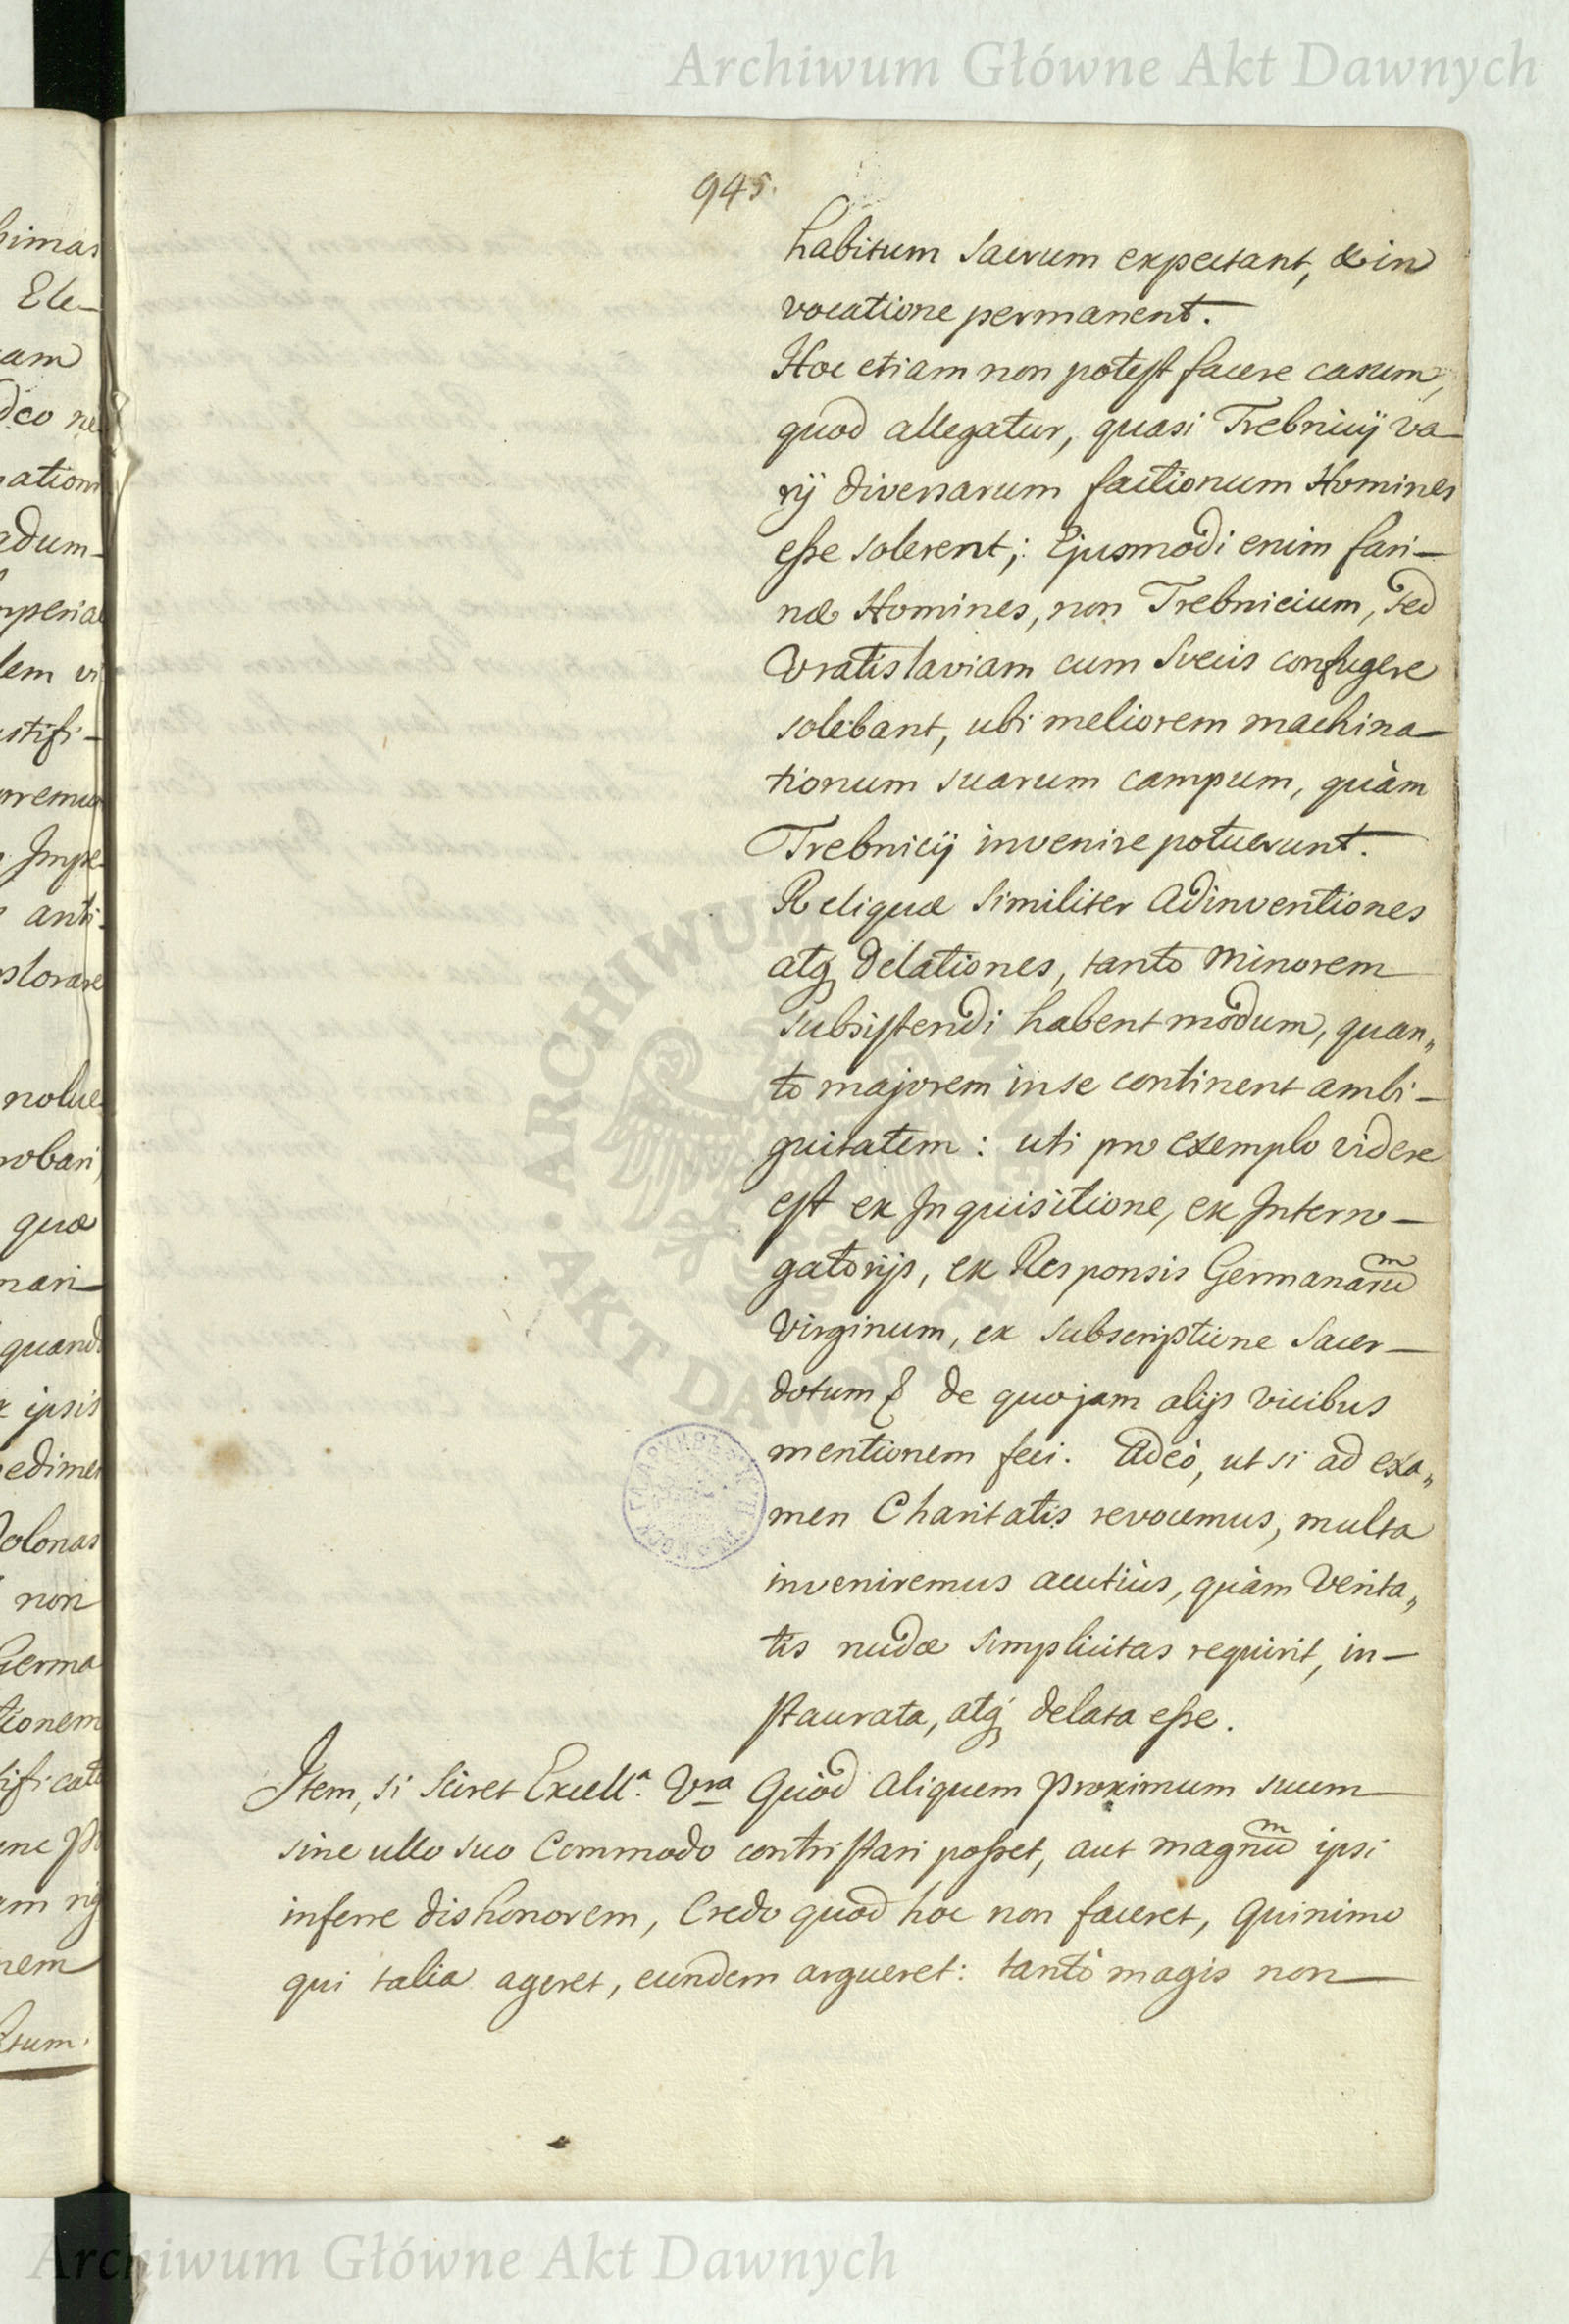 Archiwum Główne Akt Dawnych
945.
habitum Sacrum expectant, & in
vocatione permanent.
Hoc etiam non potest facere casum,
quod allegatur, quasi Trebnicij va-
rij diversarum factionum Homines
esse solerent; Ejusmodi enim fari-
næ Homines, non Trebnicium, sed
Vratislaviam cum Svecis confugere
solebant, ubi meliorem machina-
tionum suarum campum, quàm
Trebnicij invenire potuerunt.
Reliquæ Similiter Adinventiones
atq delationes, tanto Minorem
subsistendi habent modum, quan„
to majorem in se continent ambi-
guitatem: uti pro exemplo videre
est ex Inquisitione, ex Interro-
gatorijs, ex Responsis Germanarum
Virginum, ex subscriptione Sacer-
dotum & de quo jam alijs vicibus
mentionem feci. Adeò, ut si ad exa„
men Charitatis revocemus, multa
inveniremus acutiùs, quàm Verita„
tis nudæ simplicitas requirit, in-
staurata, atq delata esse.
Item, si Sciret Excell.a Vra Quòd Aliquem Proximum suum
sine ullo suo Commodo contristari posset, aut magnum ipsi
inferre dishonorem, Credo quod hoc non faceret, Quinimo
qui talia ageret, eundem argueret: tantò magis non
ARCHIWUM GŁÓWNE
AKT DAWNYCH
Archiwum Główne Akt Dawnych